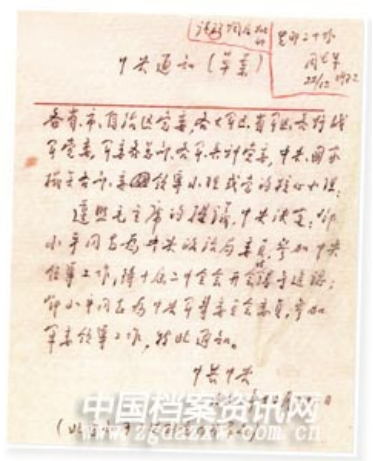 中央通知（草案）
22/12 1973
各省、市、自治区党委，各大军区、省军区、各野战
军党委，军委各总部、各军兵种党委，中央、国家
机关各部、委领导小组或党的核心小组：
遵照毛主席的提议，中央决定：邓
小平同志为中央政治局委员，参加中央
领导工作，待十届二中全会开会时予以追认；
邓小平同志为中央军委委员，参加
军委领导工作。特此通知。
中共中央
月 日
中国档案资讯网
www.zgdazxw.com.cn